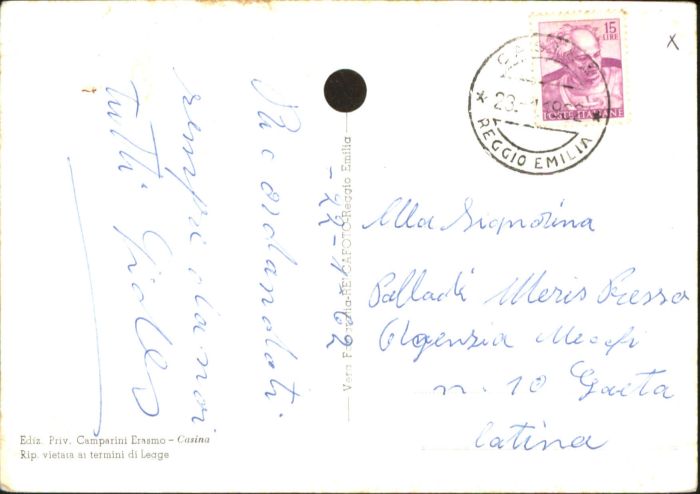 Ricordandoti
sempre
tutti
-22-1-62
Vera Fotografia-REVCAFOTO-Reggio Emilia
Alla Signorina
Palladi Meris Presso
Agenzia
n. 10 Gaeta
Latina
15
LIRE
POSTE ITALIANE
REGGIO EMILIA
Ediz. Priv. Camparini Erasmo - Casina
Rip. vietata ai termini di Legge
x